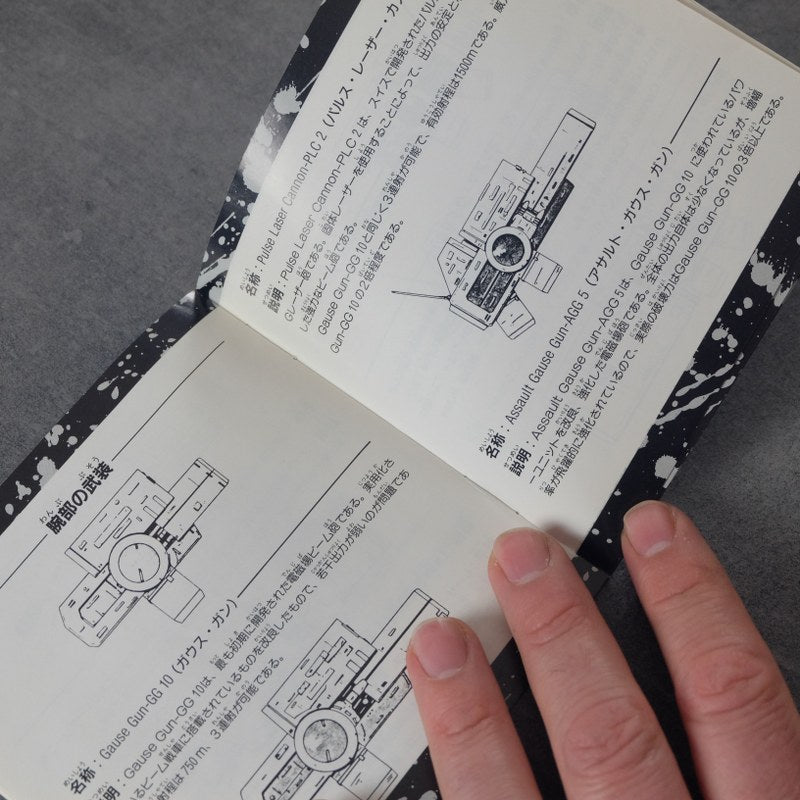 腕部の武装
名称：Gause Gun-GG 10 (ガウス・ガン)
説明：Gause Gun-GG 10は、最も初期に開発された電磁場ビーム砲である。実用化さ
いるビーム戦車に搭載されているものを改良したもので、若干出力が弱いのが問題であ
射程は750 m、3連射が可能である。
名称：Pulse Laser Cannon-PLC 2 (パルス・レーザー・カノ
説明：Pulse Laser Cannon-PLC 2 は、スイスで開発されたパルス
Gレーザー砲である。固体レーザーを使用することによって、出力の安定と
した強力なビーム砲である。
Gause Gun-GG 10と同じく3連射が可能で、有効射程は1500mである。威
Gun-GG 10の2倍程度である。
名称：Assault Gause Gun-AGG 5 (アサルト・ガウス・ガン)
説明：Assault Gause Gun-AGG 5は、Gause Gun-GG 10 に使われているパワ
ーユニットを改良、強化した電磁場砲である。全体の出力自体は少なくなっているが、増幅
率が飛躍的に強化されているので、実際の破壊力はGause Gun-GG 10の3倍以上である。